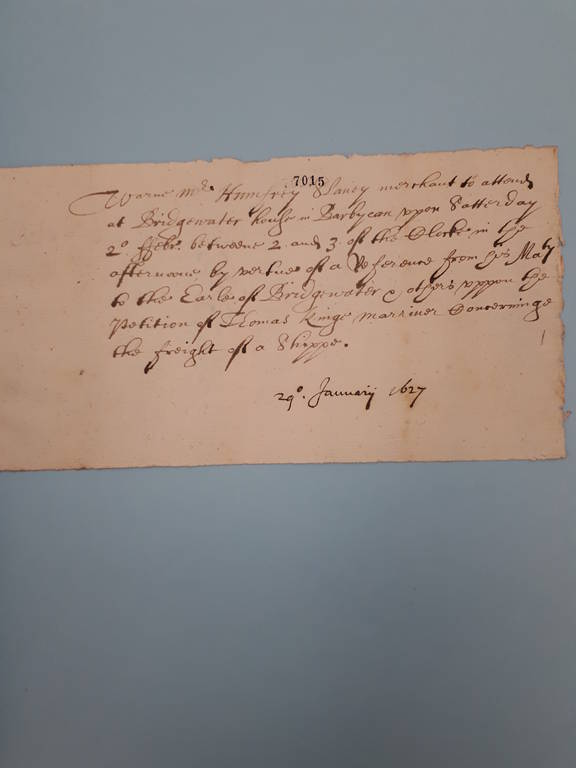 7015
Warne Mr. Humfrey Slaney merchant to attend
at Bridgewater house in Barbycan vppon Satterday
2o ffebr. betweene 2 and 3 of the Clocke in the
afternoone by vertue of a Reference from his Maty
to the Earle of Bridgewater & others vppon the
Petition of Thomas Kinge marriner Concerninge
the freight of a Shippe.
29o. Januarij 1627